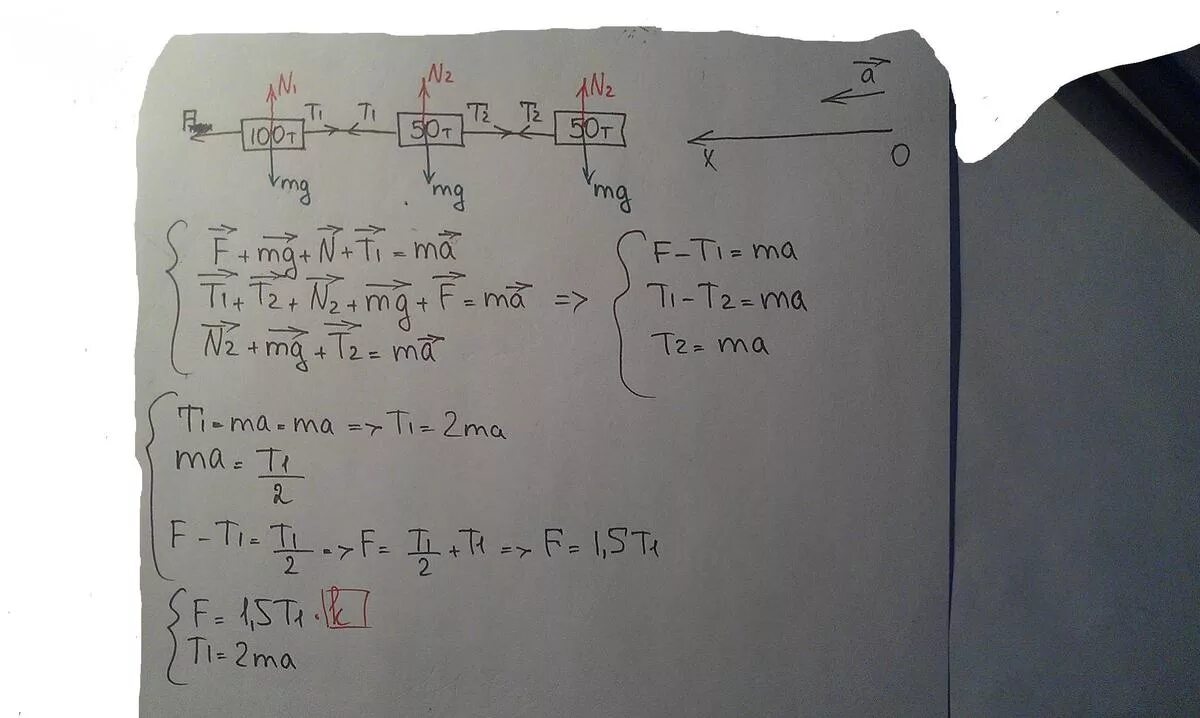 N₁ N₂ N₂ a⃗
F T₁ T₁ T₂ T₂
100т 50т 50т
X O
mg mg mg
F⃗ + mg⃗ + N⃗ + T₁⃗ = ma⃗
T₁⃗ + T₂⃗ + N₂⃗ + mg⃗ + F⃗ = ma⃗ =>
N₂⃗ + mg⃗ + T₂⃗ = ma⃗
F - T₁ = ma
T₁ - T₂ = ma
T₂ = ma
T₁ - ma = ma => T₁ = 2ma
ma = T₁/2
F - T₁ = T₁/2 => F = T₁/2 + T₁ => F = 1,5T₁
F = 1,5T₁ · k
T₁ = 2ma